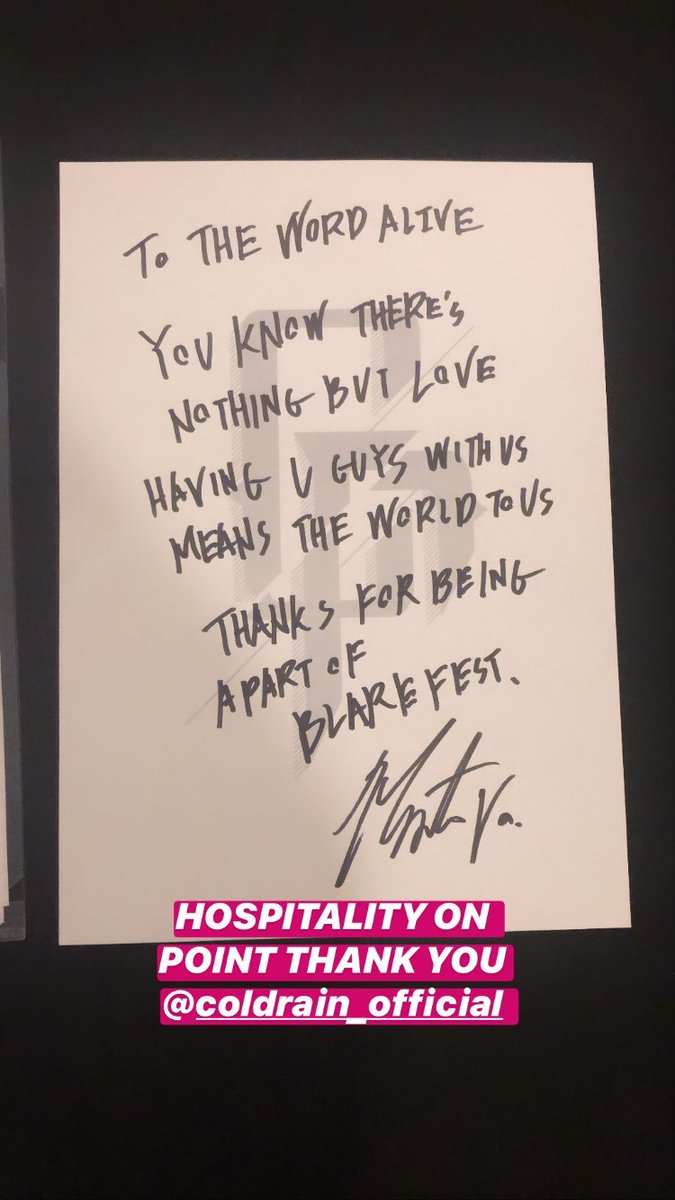 To THE WORD ALIVE
YOU KNOW THERE'S
NOTHING BUT LOVE
HAVING U GUYS WITH US
MEANS THE WORLD TO US
THANKS FOR BEING
APART OF
BLARE FEST.
HOSPITALITY ON
POINT THANK YOU
@coldrain_official